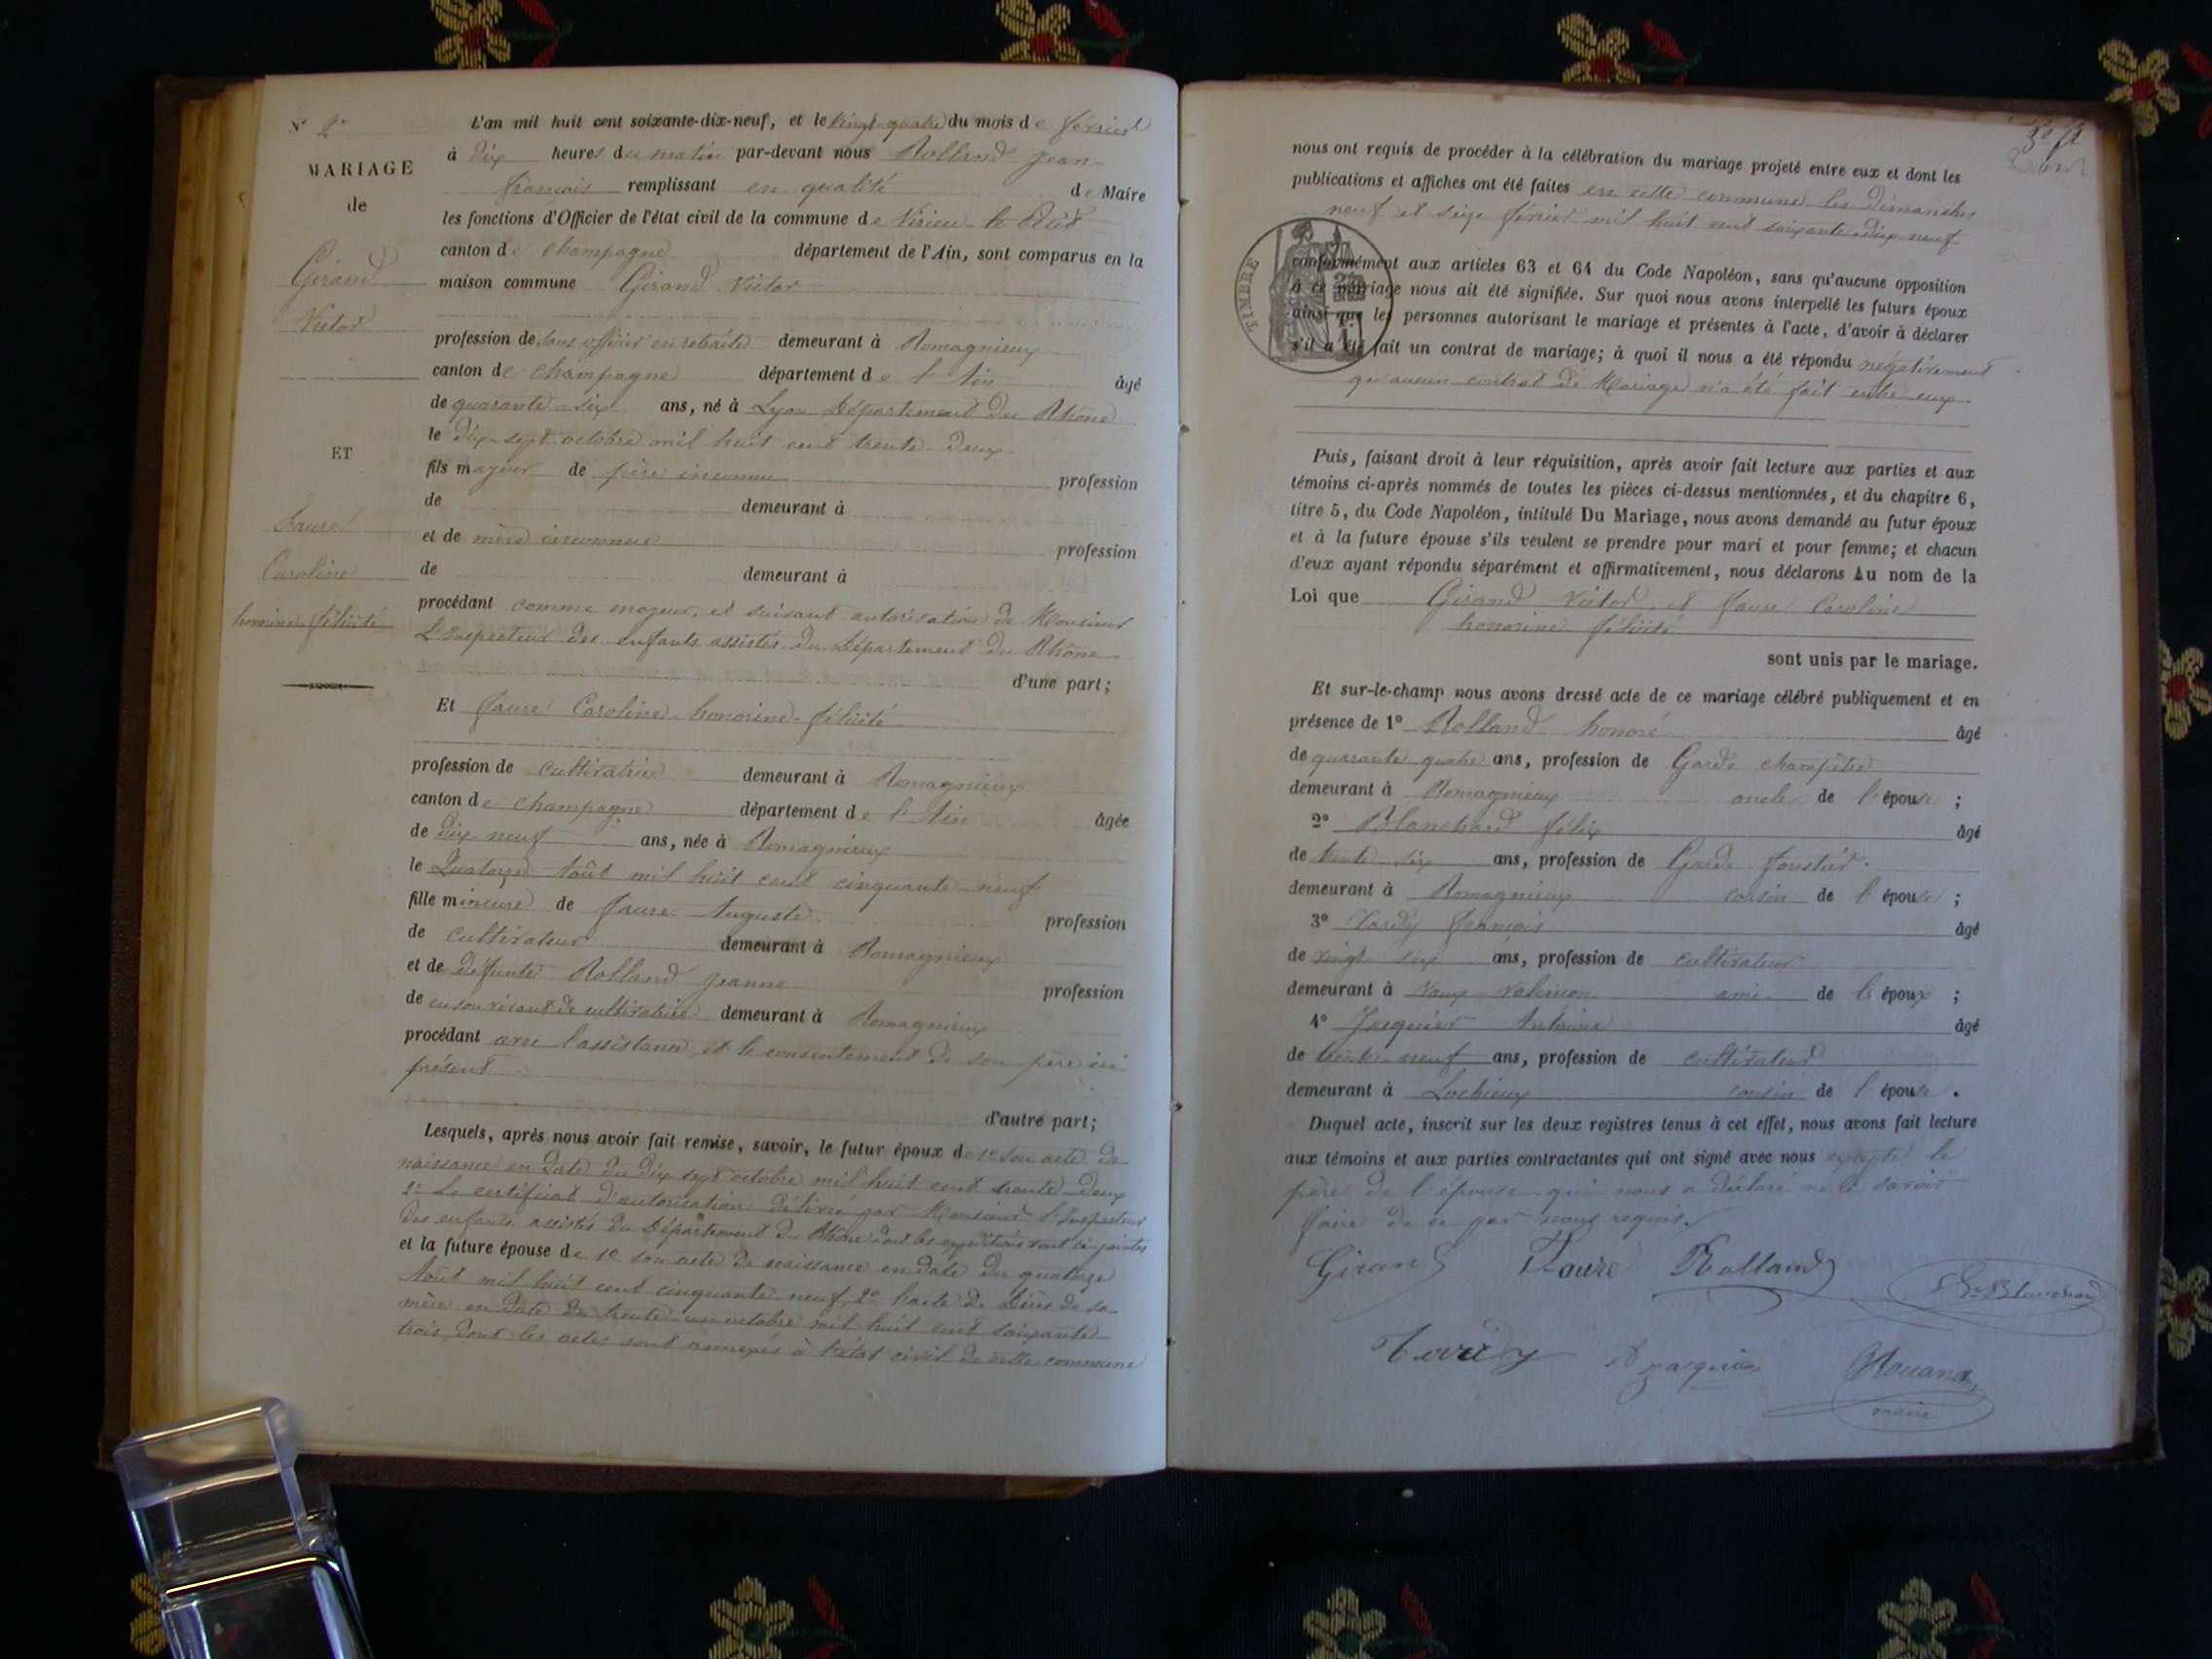 N° 2e
MARIAGE
de
Girand
Victor
ET
Faure
Caroline
honorine félicité
L'an mil huit cent soixante-dix-neuf, et le vingt quatre du mois de février
à dix heures du matin par-devant nous Rolland Jean-
françois remplissant en qualité de Maire
les fonctions d'Officier de l'état civil de la commune de Virieu le Petit
canton de Champagne département de l'Ain, sont comparus en la
maison commune Girand Victor
profession de sous officier en retraite demeurant à Romagnieux
canton de Champagne département de l'Ain âgé
de quarante-six ans, né à Lyon Département du Rhône
le dix-sept octobre mil huit cent trente-deux
fils majeur de père inconnu profession
de demeurant à
et de mère inconnue profession
de demeurant à
procédant comme majeur, et suivant autorisation de Monsieur
L'Inspecteur des enfants assistés du Département du Rhône
d'une part;
Et Faure Caroline-honorine-félicité
profession de cultivatrice demeurant à Romagnieux
canton de Champagne département de l'Ain âgée
de dix-neuf ans, née à Romagnieux
le Quatorze Août mil huit cent cinquante-neuf
fille mineure de Faure Auguste profession
de cultivateur demeurant à Romagnieux
et de défunte Rolland Jeanne profession
de en son vivant de cultivatrice demeurant à Romagnieux
procédant avec l'assistance et le consentement de son père ici
présent
d'autre part;
Lesquels, après nous avoir fait remise, savoir, le futur époux de 1e son acte de
naissance en date du dix sept octobre mil huit cent trente-deux
2e Le certificat d'autorisation délivré par Monsieur l'Inspecteur
des enfants assistés du Département du Rhône dont les expéditions sont ci-jointes
et la future épouse de 1e son acte de naissance en date du quatorze
Août mil huit cent cinquante neuf, 2e l'acte de Décès de sa
mère en date du trente-un octobre mil huit cent soixante-
trois, dont les actes sont annexés à l'état civil de cette commune
nous ont requis de procéder à la célébration du mariage projeté entre eux et dont les
publications et affiches ont été faites en cette commune les dimanches
neuf et seize février mil huit cent soixante-dix-neuf
TIMBRE
conformément aux articles 63 et 64 du Code Napoléon, sans qu'aucune opposition
à ce mariage nous ait été signifiée. Sur quoi nous avons interpellé les futurs époux
ainsi que les personnes autorisant le mariage et présentes à l'acte, d'avoir à déclarer
s'il a été fait un contrat de mariage; à quoi il nous a été répondu négativement
qu'aucun contrat de Mariage n'a été fait entre eux.
Puis, faisant droit à leur réquisition, après avoir fait lecture aux parties et aux
témoins ci-après nommés de toutes les pièces ci-dessus mentionnées, et du chapitre 6,
titre 5, du Code Napoléon, intitulé Du Mariage, nous avons demandé au futur époux
et à la future épouse s'ils veulent se prendre pour mari et pour femme; et chacun
d'eux ayant répondu séparément et affirmativement, nous déclarons Au nom de la
Loi que Girand Victor et Faure Caroline
honorine félicité
sont unis par le mariage.
Et sur-le-champ nous avons dressé acte de ce mariage célébré publiquement et en
présence de 1° Rolland honoré âgé
de quarante quatre ans, profession de Garde champêtre
demeurant à Romagnieux oncle de l'épouse ;
2° Blanchard félix âgé
de trente six ans, profession de Garde forestier
demeurant à Romagnieux cousin de l'épouse ;
3° Tardy françois âgé
de vingt six ans, profession de cultivateur
demeurant à ami de l'époux ;
4° Jacquier Antoine âgé
de trente-neuf ans, profession de cultivateur
demeurant à Lochieux cousin de l'épouse .
Duquel acte, inscrit sur les deux registres tenus à cet effet, nous avons fait lecture
aux témoins et aux parties contractantes qui ont signé avec nous excepté le
père de l'épouse qui nous a déclaré ne le savoir
faire de ce par nous requis.
Girand Faure Rolland Blanchard
Tardy Jacquier Rolland
maire